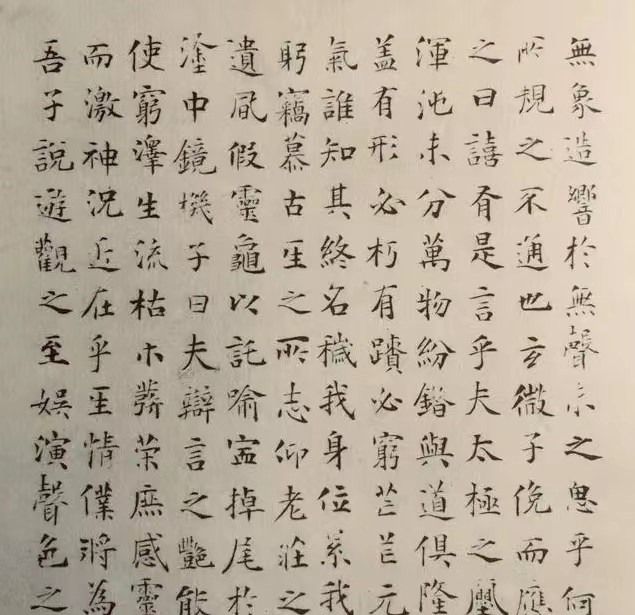 無象造響於無聲未之思乎何
所規之不通也玄微子俛而應
之曰譆有是言乎夫太極之
渾沌未分萬物紛錯與道俱隆
盖有形必朽有蹟必窮芒芒元
氣誰知其終名穢我身位累我
躬竊慕古𤯔之所志仰老莊之
遺凬假靈龜以託喻寍掉尾於
塗中鏡機子曰夫辯言之艷能
使窮澤生流枯木發榮庶感靈
而激神況近在乎𤯔情僕將為
吾子說遊觀之至娛演聲色之